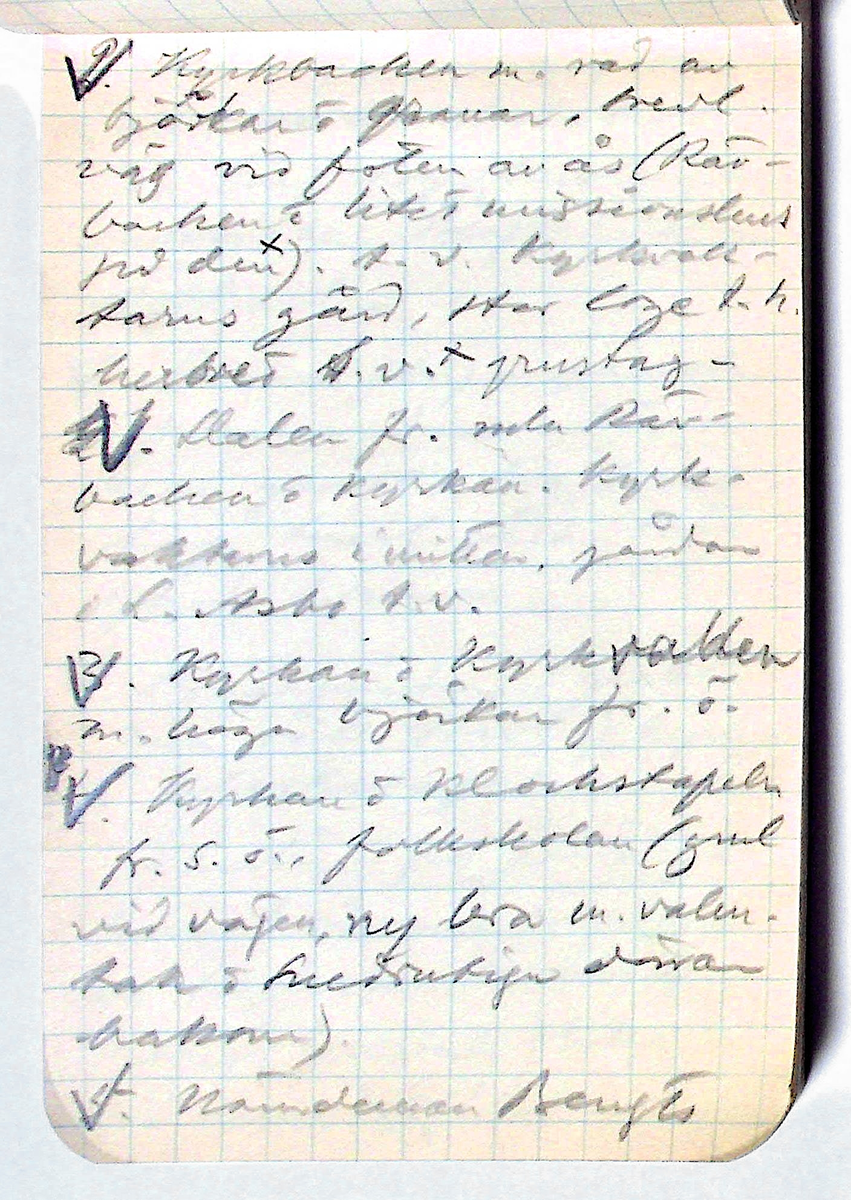 1. Kyrkbacken m. rad av
björkar o granar, bredv.
väg vid foten av ås (Räv-
backen o litet missionshus
vid den x). t. v. Kyrkvak-
tarns gård, stor loge t. h.
herbre t. v. x grustag -
2. Dalen fr. nedre Räv-
backen o kyrkan. Kyrk-
vaktarns i mitten, gårdar
i L. Åsbo t. v.
3. Kyrkan o Kyrkvallen
m. höga björkar fr. ö.
4. Kyrkan o klockstapeln
fr. s. ö., folkskolan (gul
vid vägen, ny bra m. valm-
tak o snedrutiga dörrar
bakom).
5. Nämndeman Bengts